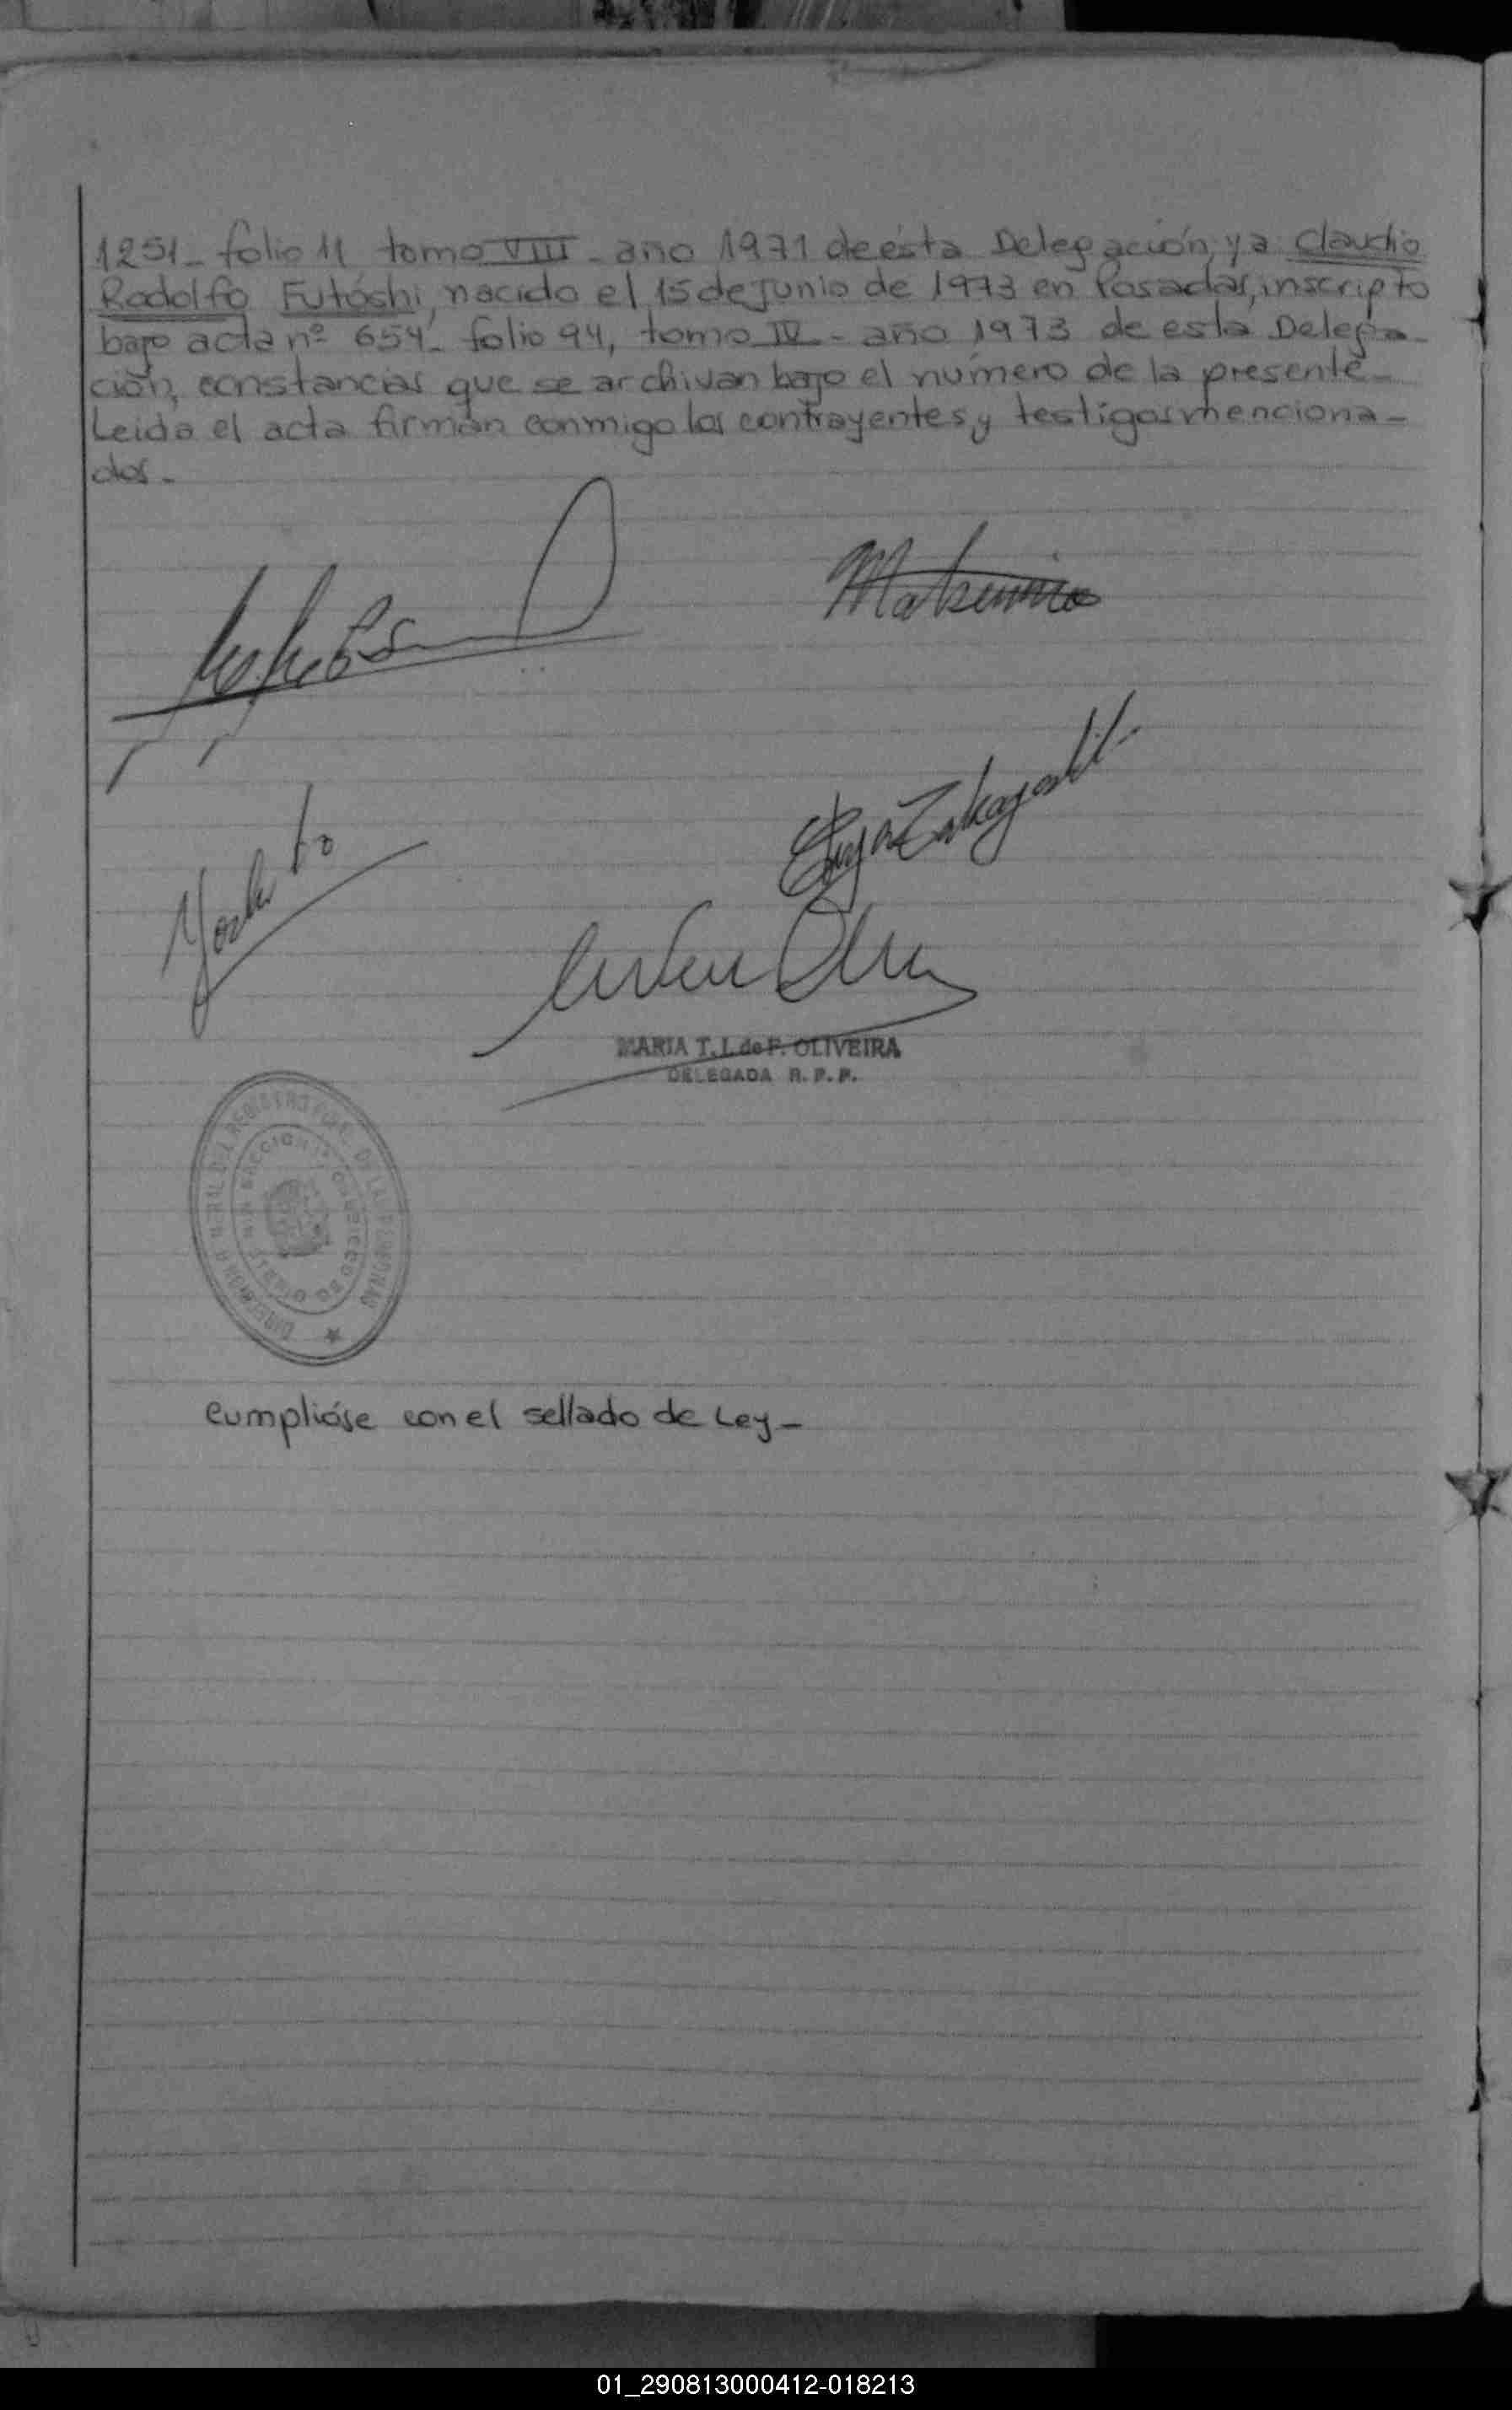 1251- folio 11 tomo VIII - año 1971 de ésta Delegación, y a Claudio
Rodolfo Futóshi, nacido el 15 de junio de 1973 en Posadas, inscripto
bajo acta nº 654- folio 94, tomo IV - año 1973 de esta Delega-
ción, constancias que se archivan bajo el número de la presente-
Leida el acta firman conmigo los contrayentes, y testigos menciona-
dos-
MARIA T. I. de F. OLIVEIRA
DELEGADA R. P. P.
Cumplióse con el sellado de Ley-
01_290813000412-018213